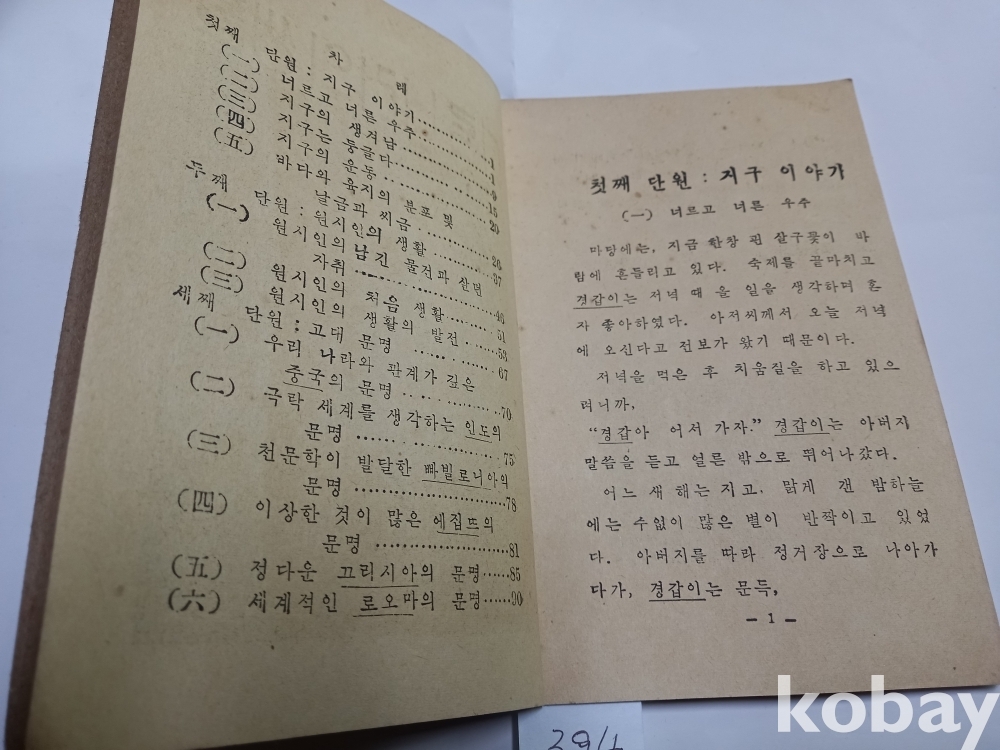 차 례
첫째 단원 : 지구 이야기……………1
(一) 너르고 너른 우주……………1
(二) 지구의 생겨남……………9
(三) 지구는 둥글다……………15
(四) 지구의 운동……………20
(五) 바다와 육지의 분포 및
날금과 씨금……………26
두째 단원 : 원시인의 생활……………37
(一) 원시인의 남긴 물건과 살던
자취……………
(二) 원시인의 처음 생활……………51
(三) 원시인의 생활의 발전……………53
세째 단원 : 고대 문명……………67
(一) 우리 나라와 관계가 깊은
중국의 문명……………70
(二) 극락 세계를 생각하는 인도의
문명……………75
(三) 천문학이 발달한 빠빌로니아의
문명……………78
(四) 이상한 것이 많은 에집뜨의
문명……………81
(五) 정다운 끄리시아의 문명……85
(六) 세계적인 로오마의 문명……90
첫째 단원 : 지구 이야기
(一) 너르고 너른 우주
마당에는, 지금 한창 핀 살구꽃이 바
람에 흔들리고 있다. 숙제를 끝마치고
경갑이는 저녁 때 올 일을 생각하며 혼
자 좋아하였다. 아저씨께서 오늘 저녁
에 오신다고 전보가 왔기 때문이다.
저녁을 먹은 후 치움질을 하고 있으
려니까,
“경갑아 어서 가자.” 경갑이는 아버지
말씀을 듣고 얼른 밖으로 뛰어나갔다.
어느 새 해는 지고, 맑게 갠 밤하늘
에는 수없이 많은 별이 반짝이고 있었
다. 아버지를 따라 정거장으로 나아가
다가, 경갑이는 문득,
— 1 —
kobay